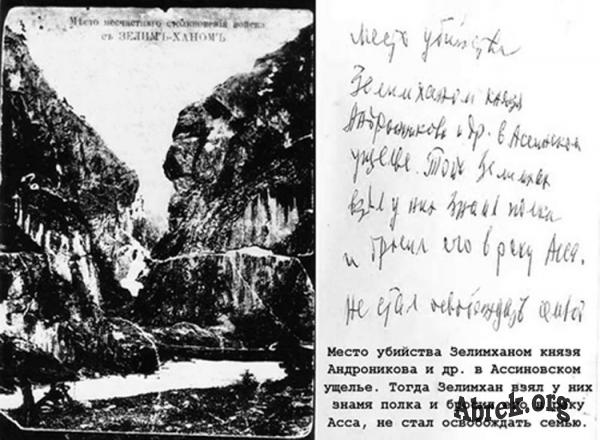 Мѣсто несчастнаго столкновенія войска
съ ЗЕЛИМЪ-ХАНОМЪ
место убийства
Зелимханом князя
Андроникова и др. в Ассинском
ущелье. Тогда Зелимхан
взял у них знамя полка
и бросил его в реку Асса.
Не стал освобождать семью
Место убийства Зелимханом князя
Андроникова и др. в Ассиновском
ущелье. Тогда Зелимхан взял у них
знамя полка и бросил его в реку
Асса, не стал освобождать семью.
Abrek.org